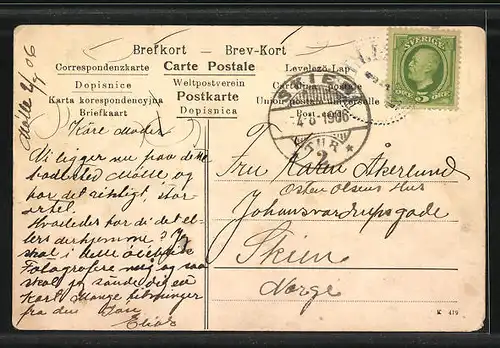 Brefkort — Brev-Kort
Correspondenzkarte Carte Postale Levelezö-Lap
Dopisnice Weltpostverein
Karta korespondencyjna Postkarte Union postale universelle
Briefkaart Dopisnica
SVERIGE
5 ÖRE
SKIEN
-4 8 1906
TUR
2
Mölle 2/8 06
Käre Moder
Vi ligger nu paa dette
badested Mölle og
har det rigtigt, stor-
artet.
Hvorledes har i det el-
lers derhjemme? Jeg
skal i dette öieblik
Fotografere mig og saa
skal jeg sende dig et
Kart Mange hilsninger
fra din Søn
Elias
Fru Karen Åkerlund
Osten Olsens Hus
Johansvardrupsgade
Skien
Norge
K 419